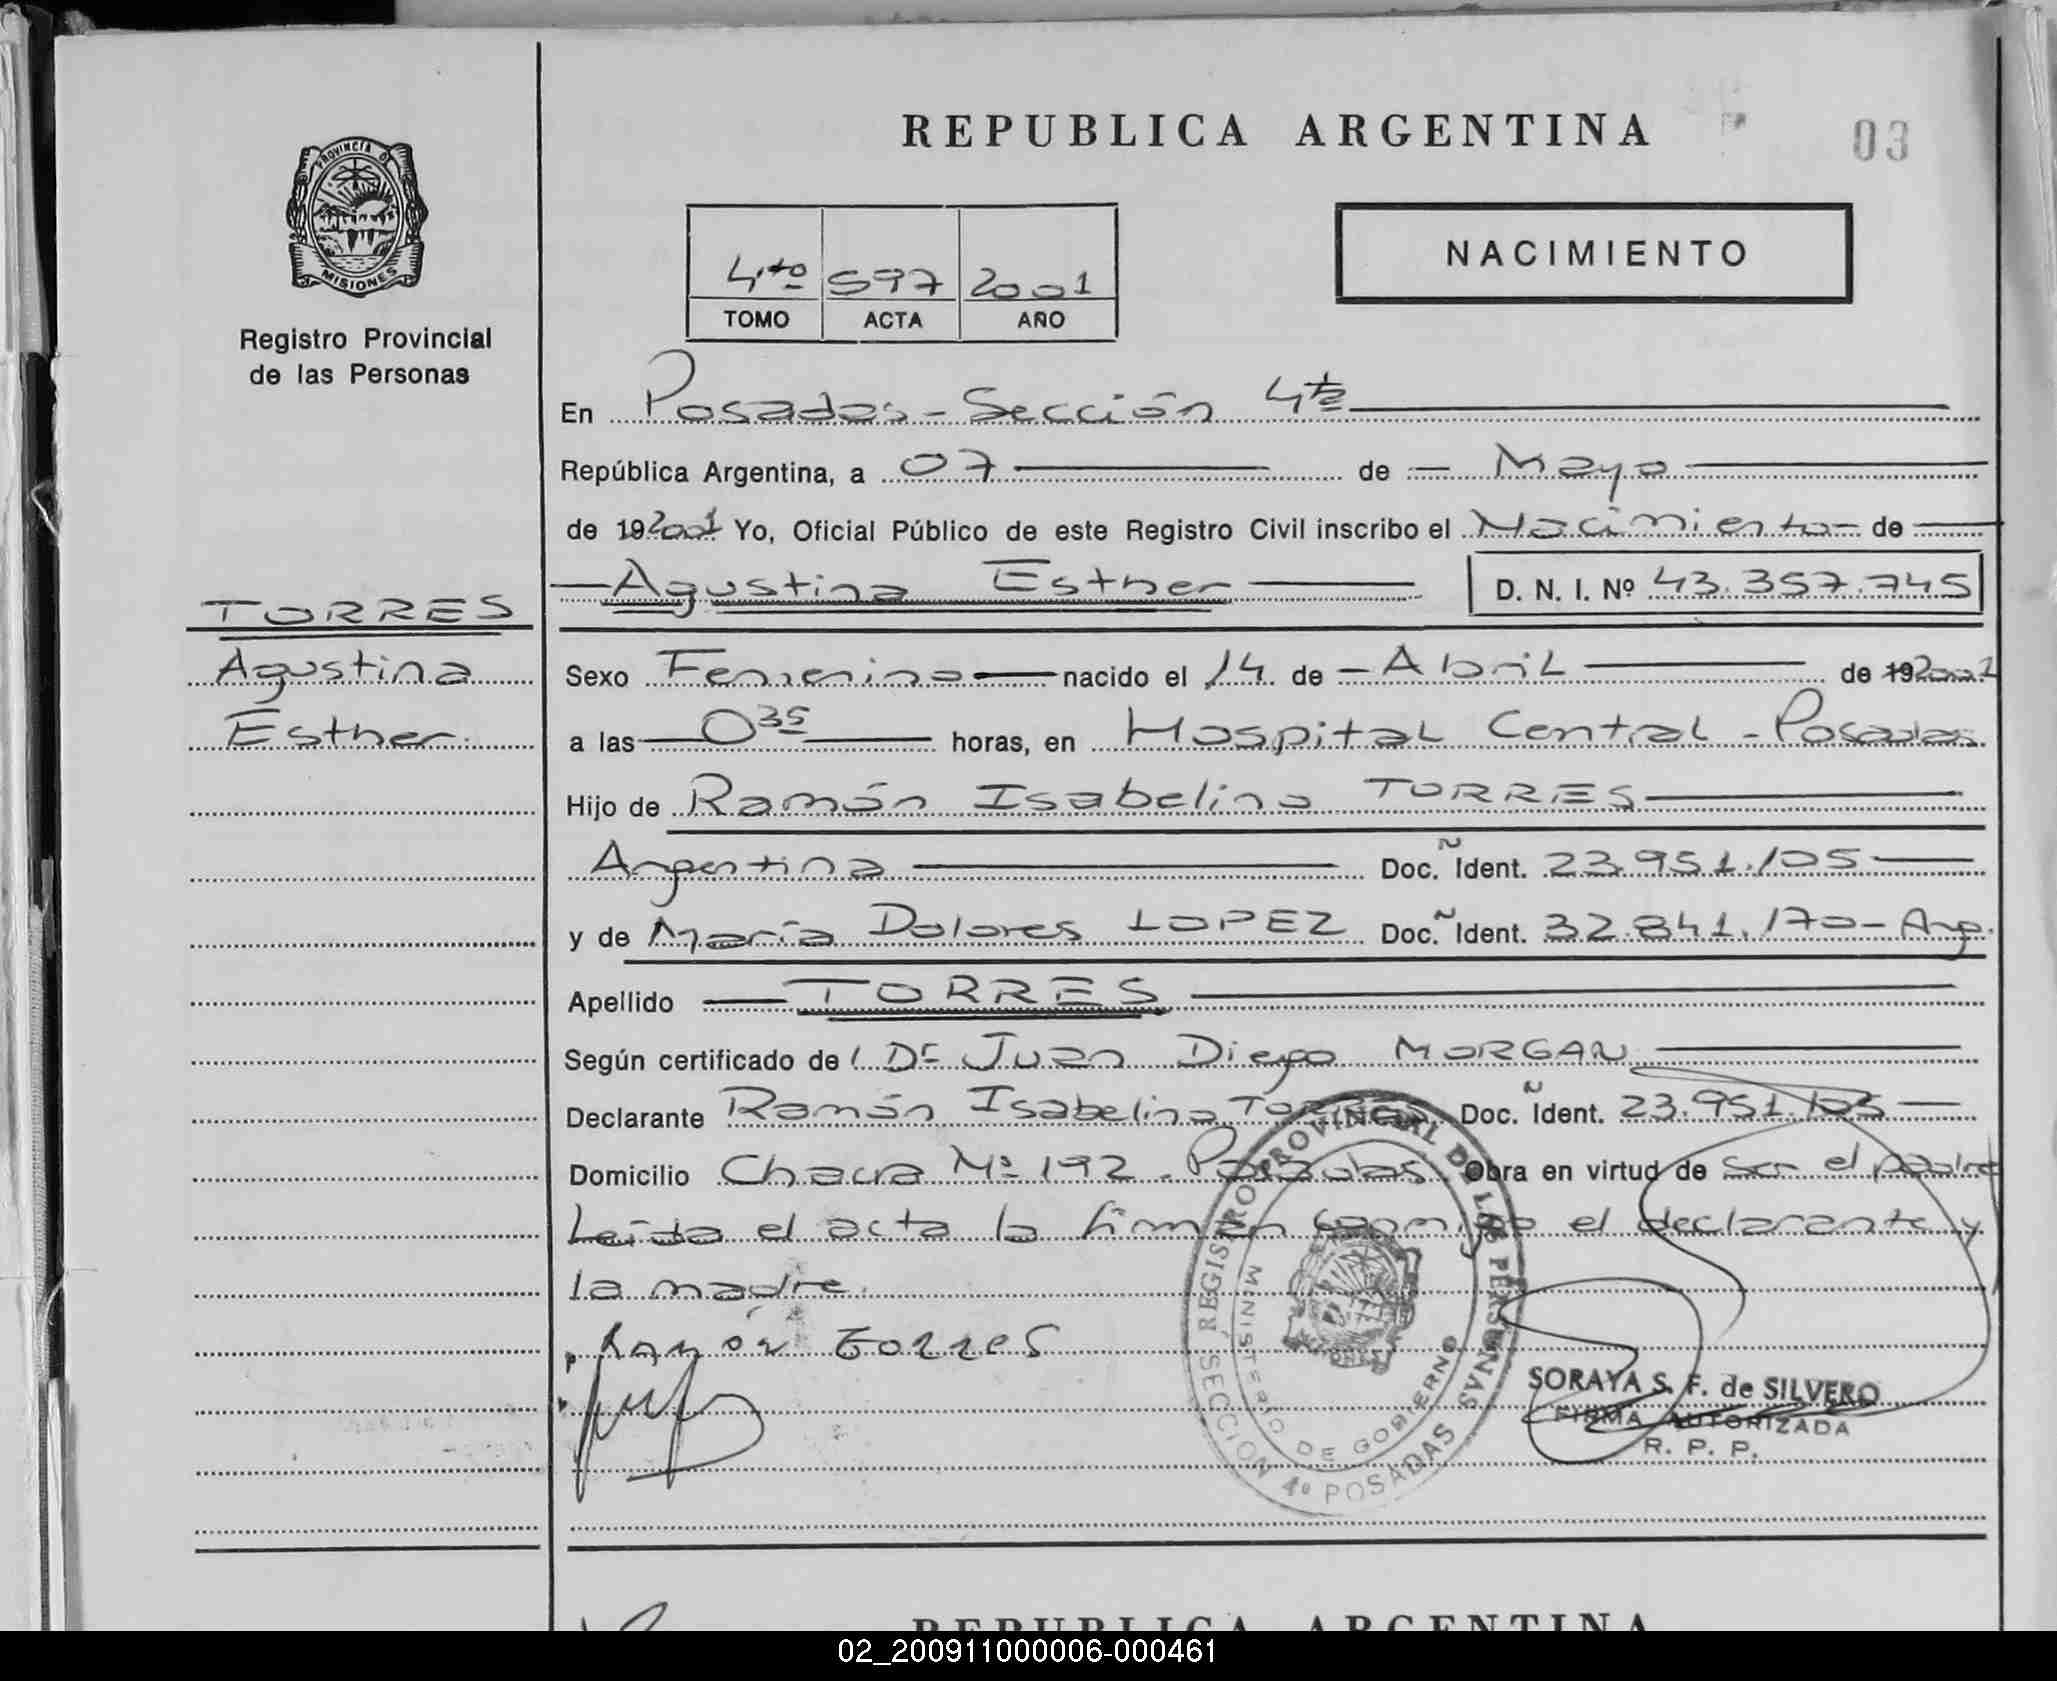 REPUBLICA ARGENTINA
03
PROVINCIA DE
MISIONES
Registro Provincial
de las Personas
NACIMIENTO
4to 597 2001
TOMO ACTA AÑO
En Posadas - Sección 4ta
República Argentina, a 07 de Mayo
de 19 2001 Yo, Oficial Público de este Registro Civil inscribo el Nacimiento de
Agustina Esther D. N. I. Nº 43.357.745
TORRES
Agustina
Esther
Sexo Femenino nacido el 14 de Abril de 19 2001
a las 0 35 horas, en Hospital Central - Posadas
Hijo de Ramón Isabelino TORRES
Argentina Doc. Ident. 23.951.105
y de María Dolores LOPEZ Doc. Ident. 32.841.170 - Arg.
Apellido TORRES
Según certificado de Dr Juan Diego MORGAN
Declarante Ramón Isabelino TORRES Doc. Ident. 23.951.105
Domicilio Chacra Nº 192 - Posadas. Obra en virtud de ser el padre
Leída el acta la firman conmigo el declarante y
la madre.
Ramón Torres
REGISTRO PROVINCIAL DE LAS PERSONAS
SECCION 4º POSADAS
MINISTERIO DE GOBIERNO
SORAYA S. F. de SILVERO
FIRMA AUTORIZADA
R. P. P.
REPUBLICA ARGENTINA
02_200911000006-000461